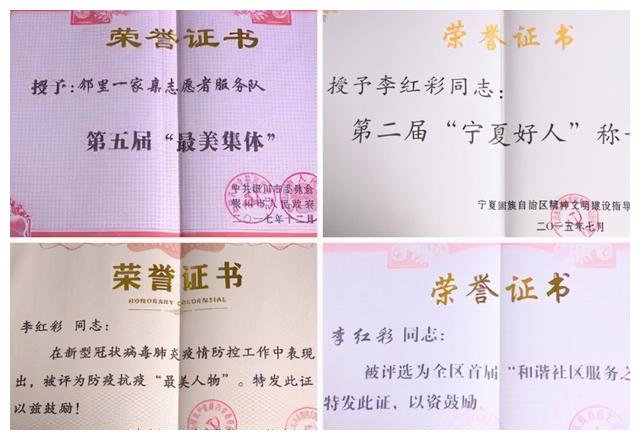 荣誉证书
授予：邻里一家亲志愿者服务队
第五届“最美集体”
中共银川市委员会
银川市人民政府
二〇一七年十二月
荣誉证书
授予李红彩同志：
第二届“宁夏好人”称
宁夏回族自治区精神文明建设指导
二〇一五年七月
荣誉证书
HONORARY CREDENTIAL
李红彩 同志：
在新型冠状病毒肺炎疫情防控工作中表现
出，被评为防疫抗疫“最美人物”。特发此证
以兹鼓励！
荣誉证书
李红彩 同志：
被评选为全区首届“和谐社区服务之
特发此证，以资鼓励